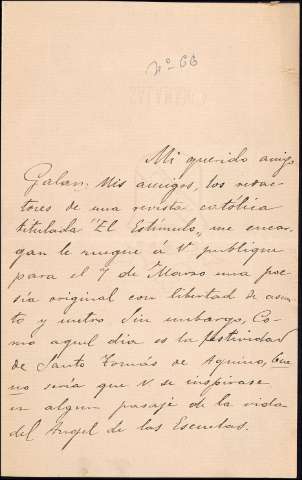 Nº 66
Mi querido amigo
Galan: Mis amigos, los redac-
tores de una revista católica
titulada "El Estímulo", me encar-
gan le ruegue á V publique
para el 7 de Marzo una poe-
sía original con libertad de asun-
to y metro Sin embargo, Co-
mo aquel dia es la festividad
de Santo Tomás de Aquino, bue
no sería que V se inspirase
en algun pasaje de la vida
del Angel de las Escuelas.